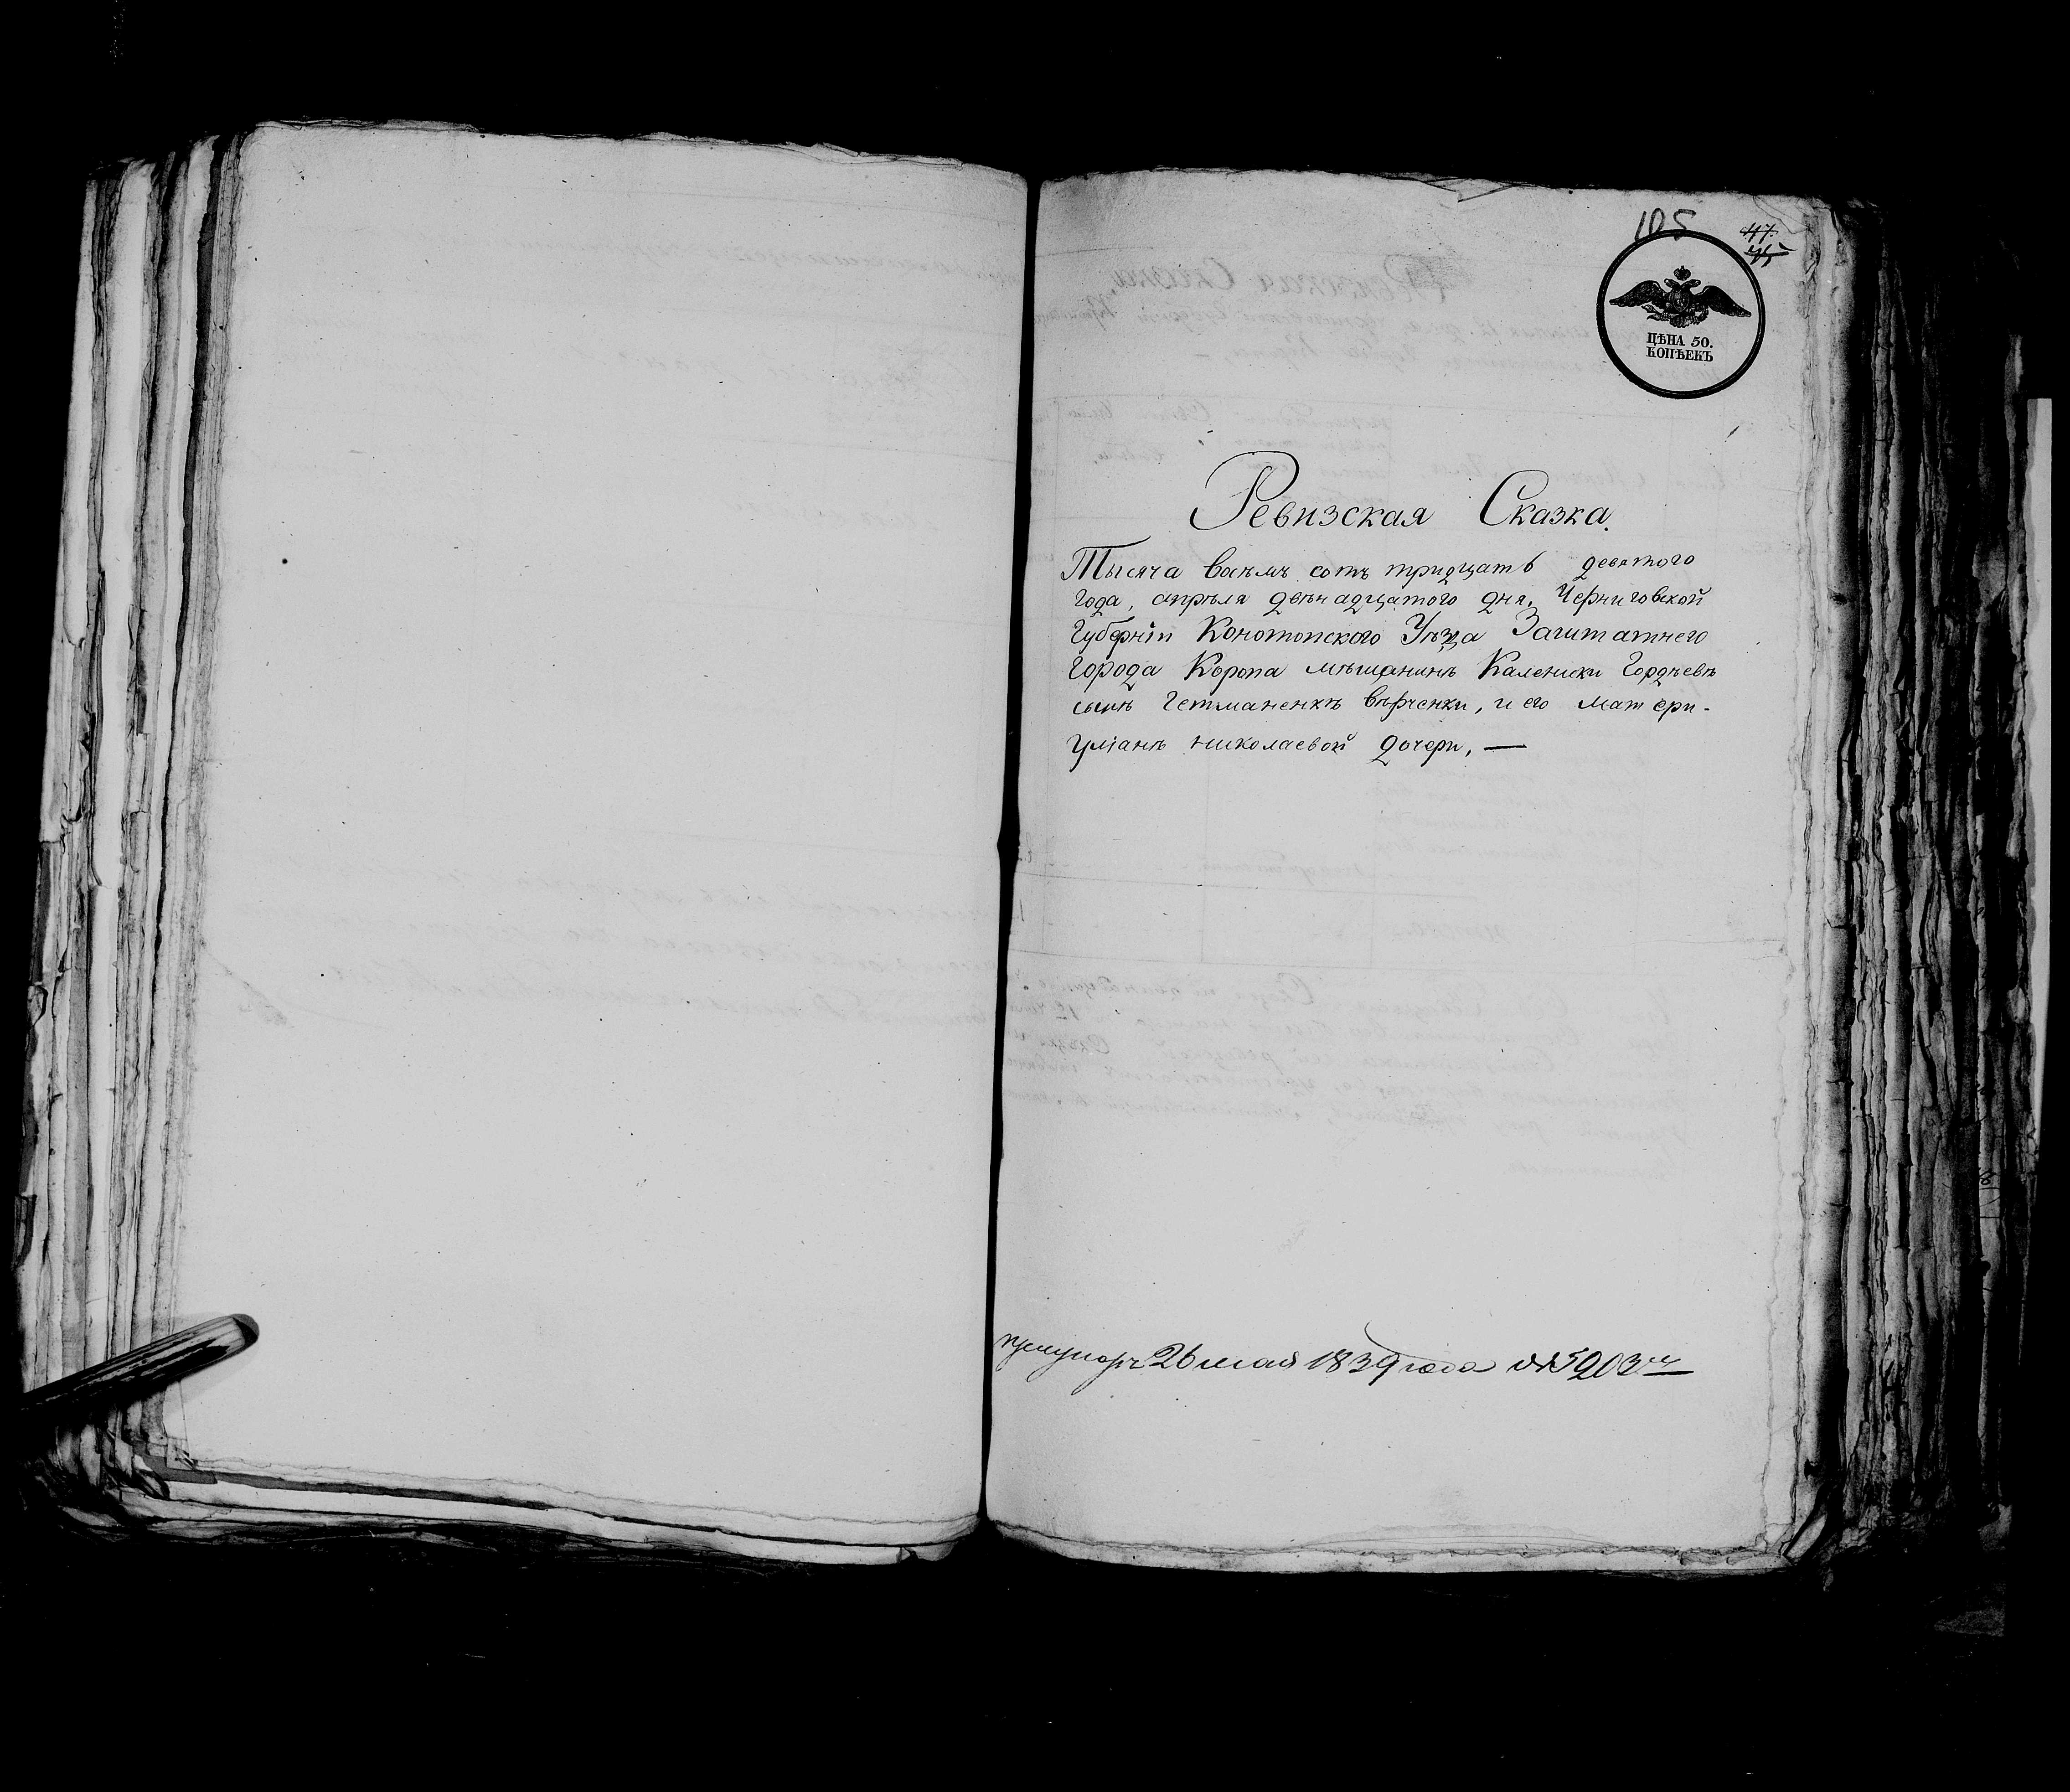 105
47.
ЦѢНА 50.
КОПѢЕКЪ
Ревизская Сказка.
Тысяча восѣмъ сотъ тридцать девятого
года, апрѣля двѣнадцатого дня, Черниговской
Губерніи Конотопского Уѣзда Заштатнего
города Коропа мѣщанинъ Калениски Гордѣевъ
сынъ Гетманенкъ и его матери
николаевой дочери, —
26 мая 1839 года № 5903